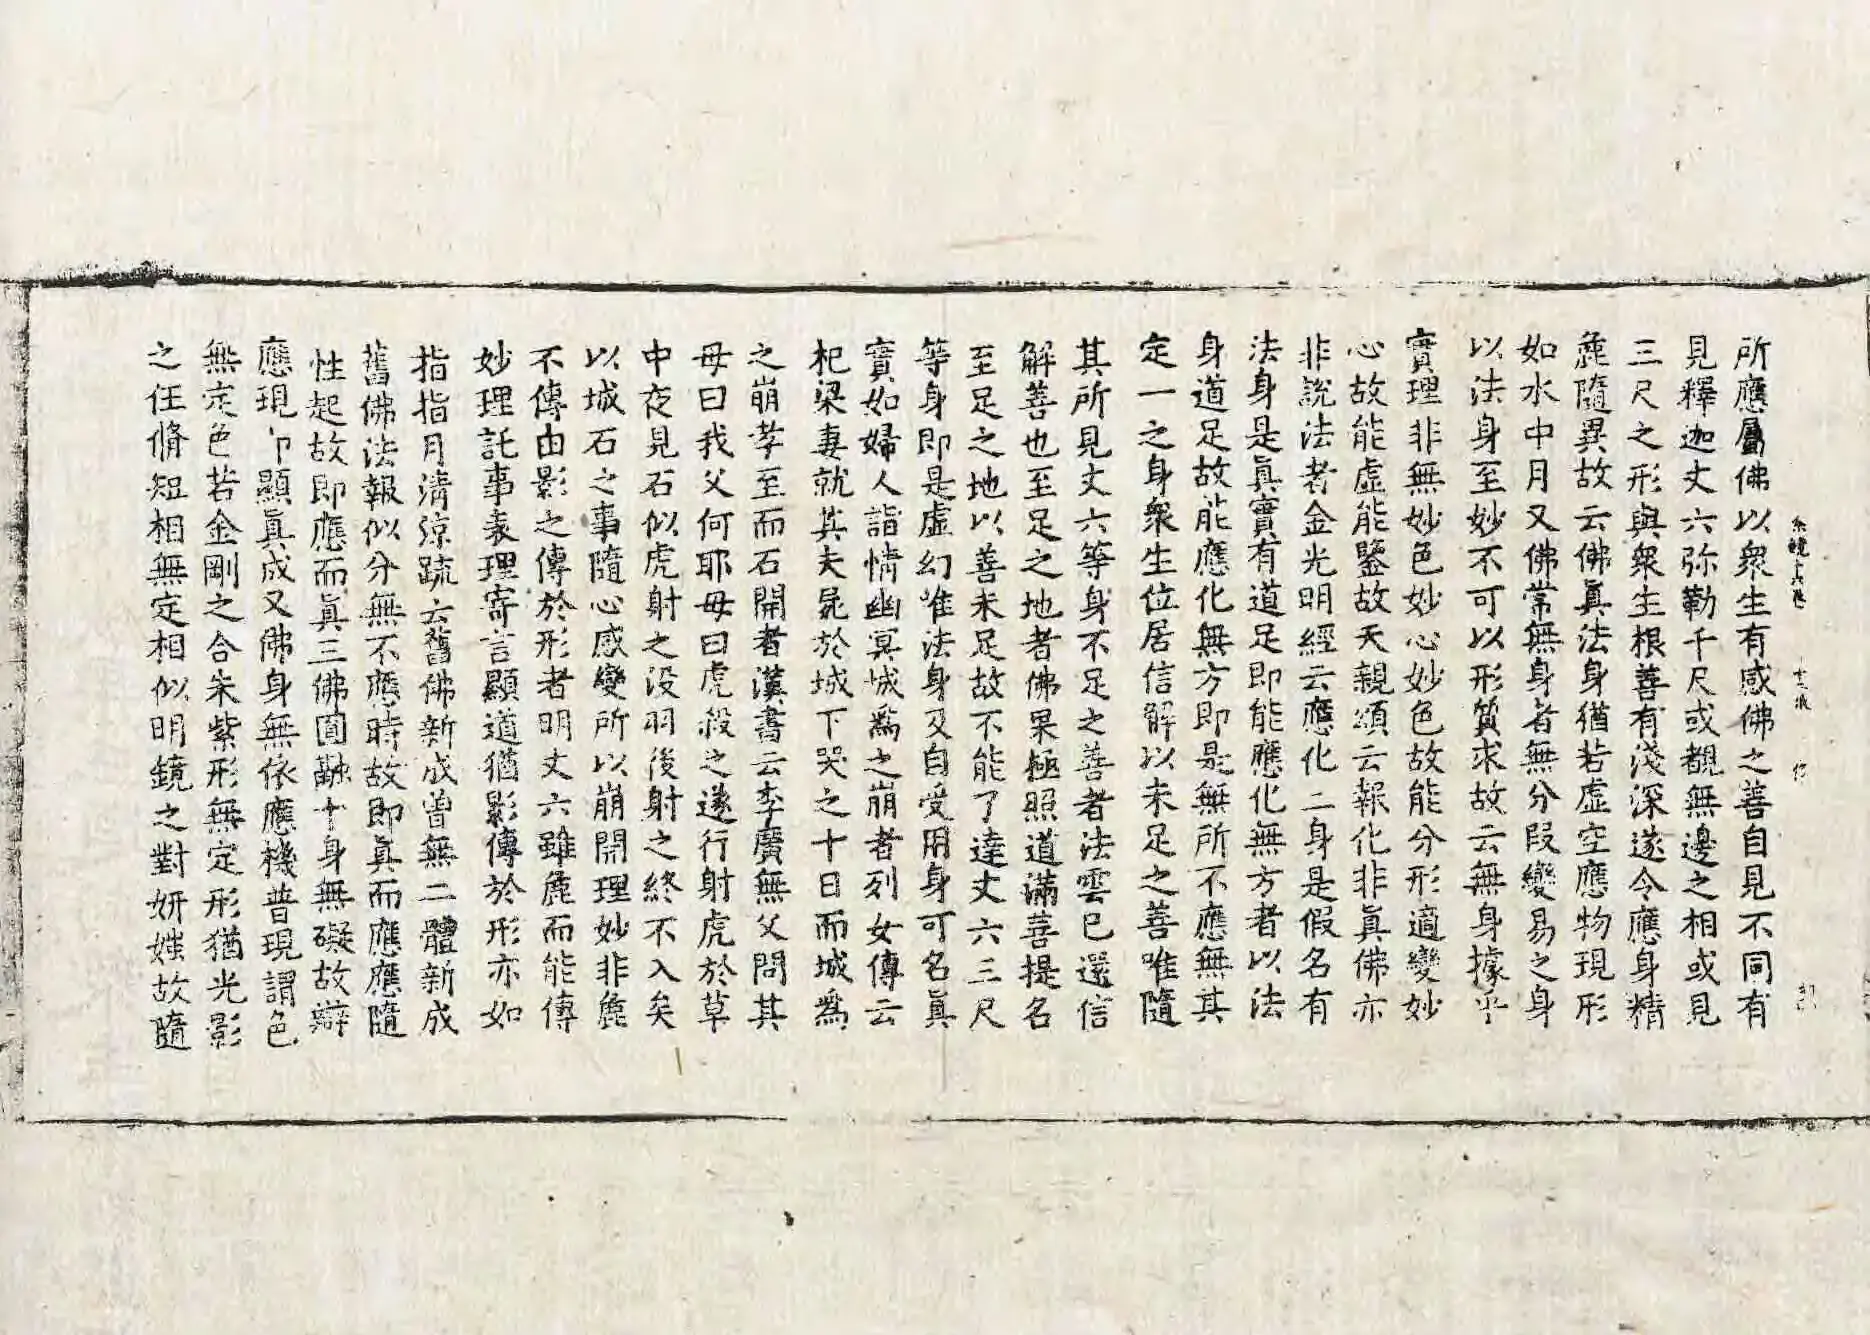 所應屬佛以衆生有感佛之善自見不同有
見釋迦丈六弥勒千尺或覩無邊之相或見
三尺之形與衆生根善有淺深遂令應身精
麁隨異故云佛眞法身猶若虛空應物現形
如水中月又佛常無身者無分叚變易之身
以法身至妙不可以形質求故云無身據乎
實理非無妙色妙心妙色故能分形適變妙
心故能虛能鑒故天親頌云報化非眞佛亦
非說法者金光明經云應化二身是假名有
法身是眞實有道足即能應化無方者以法
身道足故能應化無方即是無所不應無其
定一之身衆生位居信解以未足之善唯隨
其所見丈六等身不足之善者法雲已還信
解善也至足之地者佛果極照道滿菩提名
至足之地以善未足故不能了達丈六三尺
等身即是虛幻唯法身及自受用身可名眞
實如婦人詣情幽冥城爲之崩者列女傳云
杞梁妻就其夫屍於城下哭之十日而城爲
之崩孝至而石開者漢書云李廣無父問其
母曰我父何耶母曰虎殺之遂行射虎於草
中夜見石似虎射之没羽後射之終不入矣
以城石之事隨心感變所以崩開理妙非麁
不傳由影之傳於形者明丈六雖麁而能傳
妙理託事表理寄言顯道猶影傳於形亦如
指指月清涼疏云舊佛新成曾無二體新成
舊佛法報似分無不應時故即眞而應應隨
性起故即應而眞三佛圓融十身無礙故辯
應現卽顯眞成又佛身無依應機普現謂色
無定色若金剛之合朱紫形無定形猶光影
之任脩短相無定相似明鏡之對妍媸故隨